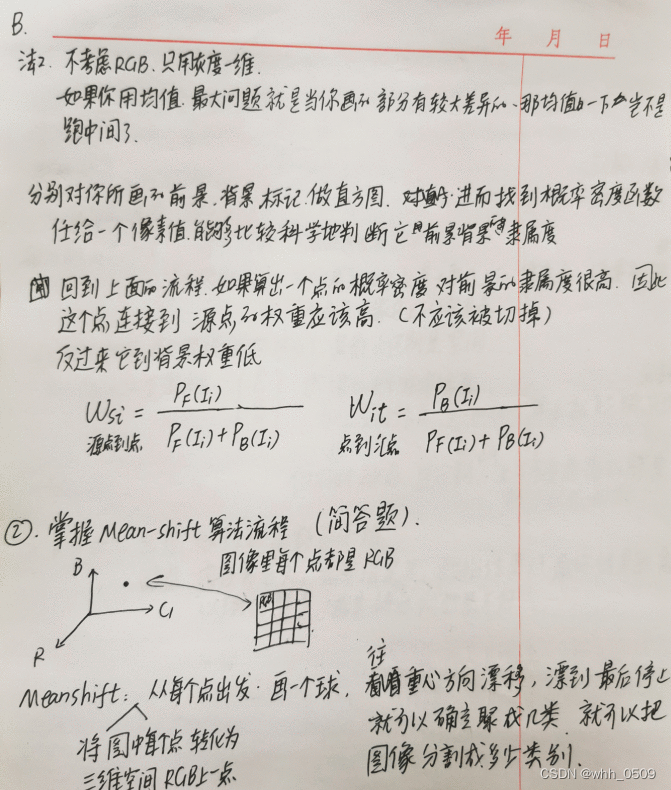 B.
年 月 日
法2. 不考虑RGB. 只用灰度一维.
如果你用均值. 最大问题就是当你画的部分有较大差异的. 那均值一下岂不是
跑中间了.
分别对你所画的前景. 背景标记. 做直方图. 进而找到概率密度函数
任给一个像素值. 能够比较科学地判断它前景背景的隶属度
回到上面的流程. 如果算出一个点的概率密度对前景的隶属度很高. 因此
这个点连接到源点的权重应该高. (不应该被切掉)
反过来它到背景权重低
Wsi = PF(Ii) / PF(Ii)+PB(Ii) Wit = PB(Ii) / PF(Ii)+PB(Ii)
源点到点 点到汇点
②. 掌握Mean-shift算法流程 (简答题).
图像里每个点都是RGB
B
G
R
RGB
Meanshift: 从每个点出发. 画一个球, 往重心方向漂移, 漂到最后停止
就可以确定聚成几类. 就可以把
图像分割成多少类别.
将图中每个点转化为
三维空间RGB上一点
CSDN @whh_0509